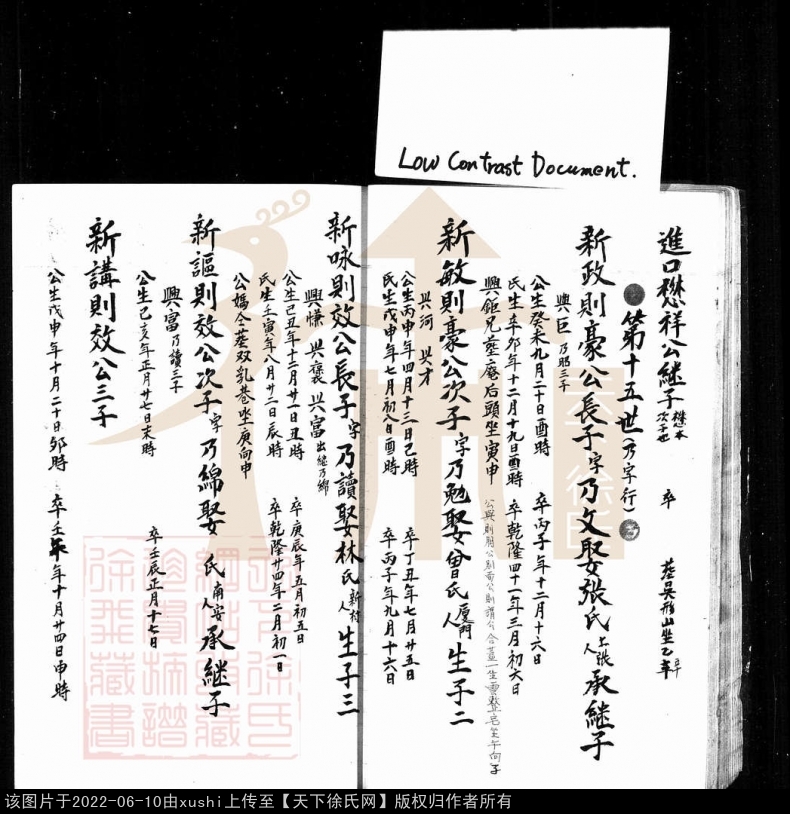 Low Contrast Document.
進口懋祥公繼子 懋本次子也 卒 葬吳形山坐乙辛
第十五世(乃字行)
新政則豪公長子字乃文娶張氏上張人承繼子
興巨乃昭三子
公生癸未九月二十日酉時 卒丙子年十二月十六日
氏生辛卯年十二月十九日酉時 卒乾隆四十一年三月初六日
興鉅兄葬磨后頭坐寅申
新敏則豪公次子字乃勉娶曾氏廈門人生子二
興河 興才
公生丙申年四月十三日己時 卒丁丑年七月廿五日
氏生戊申年七月初八日酉時 卒丙子年九月十六日
新咏則效公長子字乃讀娶林氏新村人生子三
興慊 興褒 興富出繼乃綿
公生己丑年十二月廿一日丑時 卒庚辰年五月初五日
氏生壬寅年八月廿二日辰時 卒乾隆廿四年二月初一日
公媽仝葬双乳巷坐庚向甲
新謳則效公次子字乃綿娶 氏南安人承繼子
興富乃讀三子
公生己亥年正月廿七日未時 卒壬辰正月十七日
新講則效公三子
公生戊申年十月二十日卯時 卒壬年十月廿四日申時
该图片于2022-06-10由xushi上传至【天下徐氏网】版权归作者所有